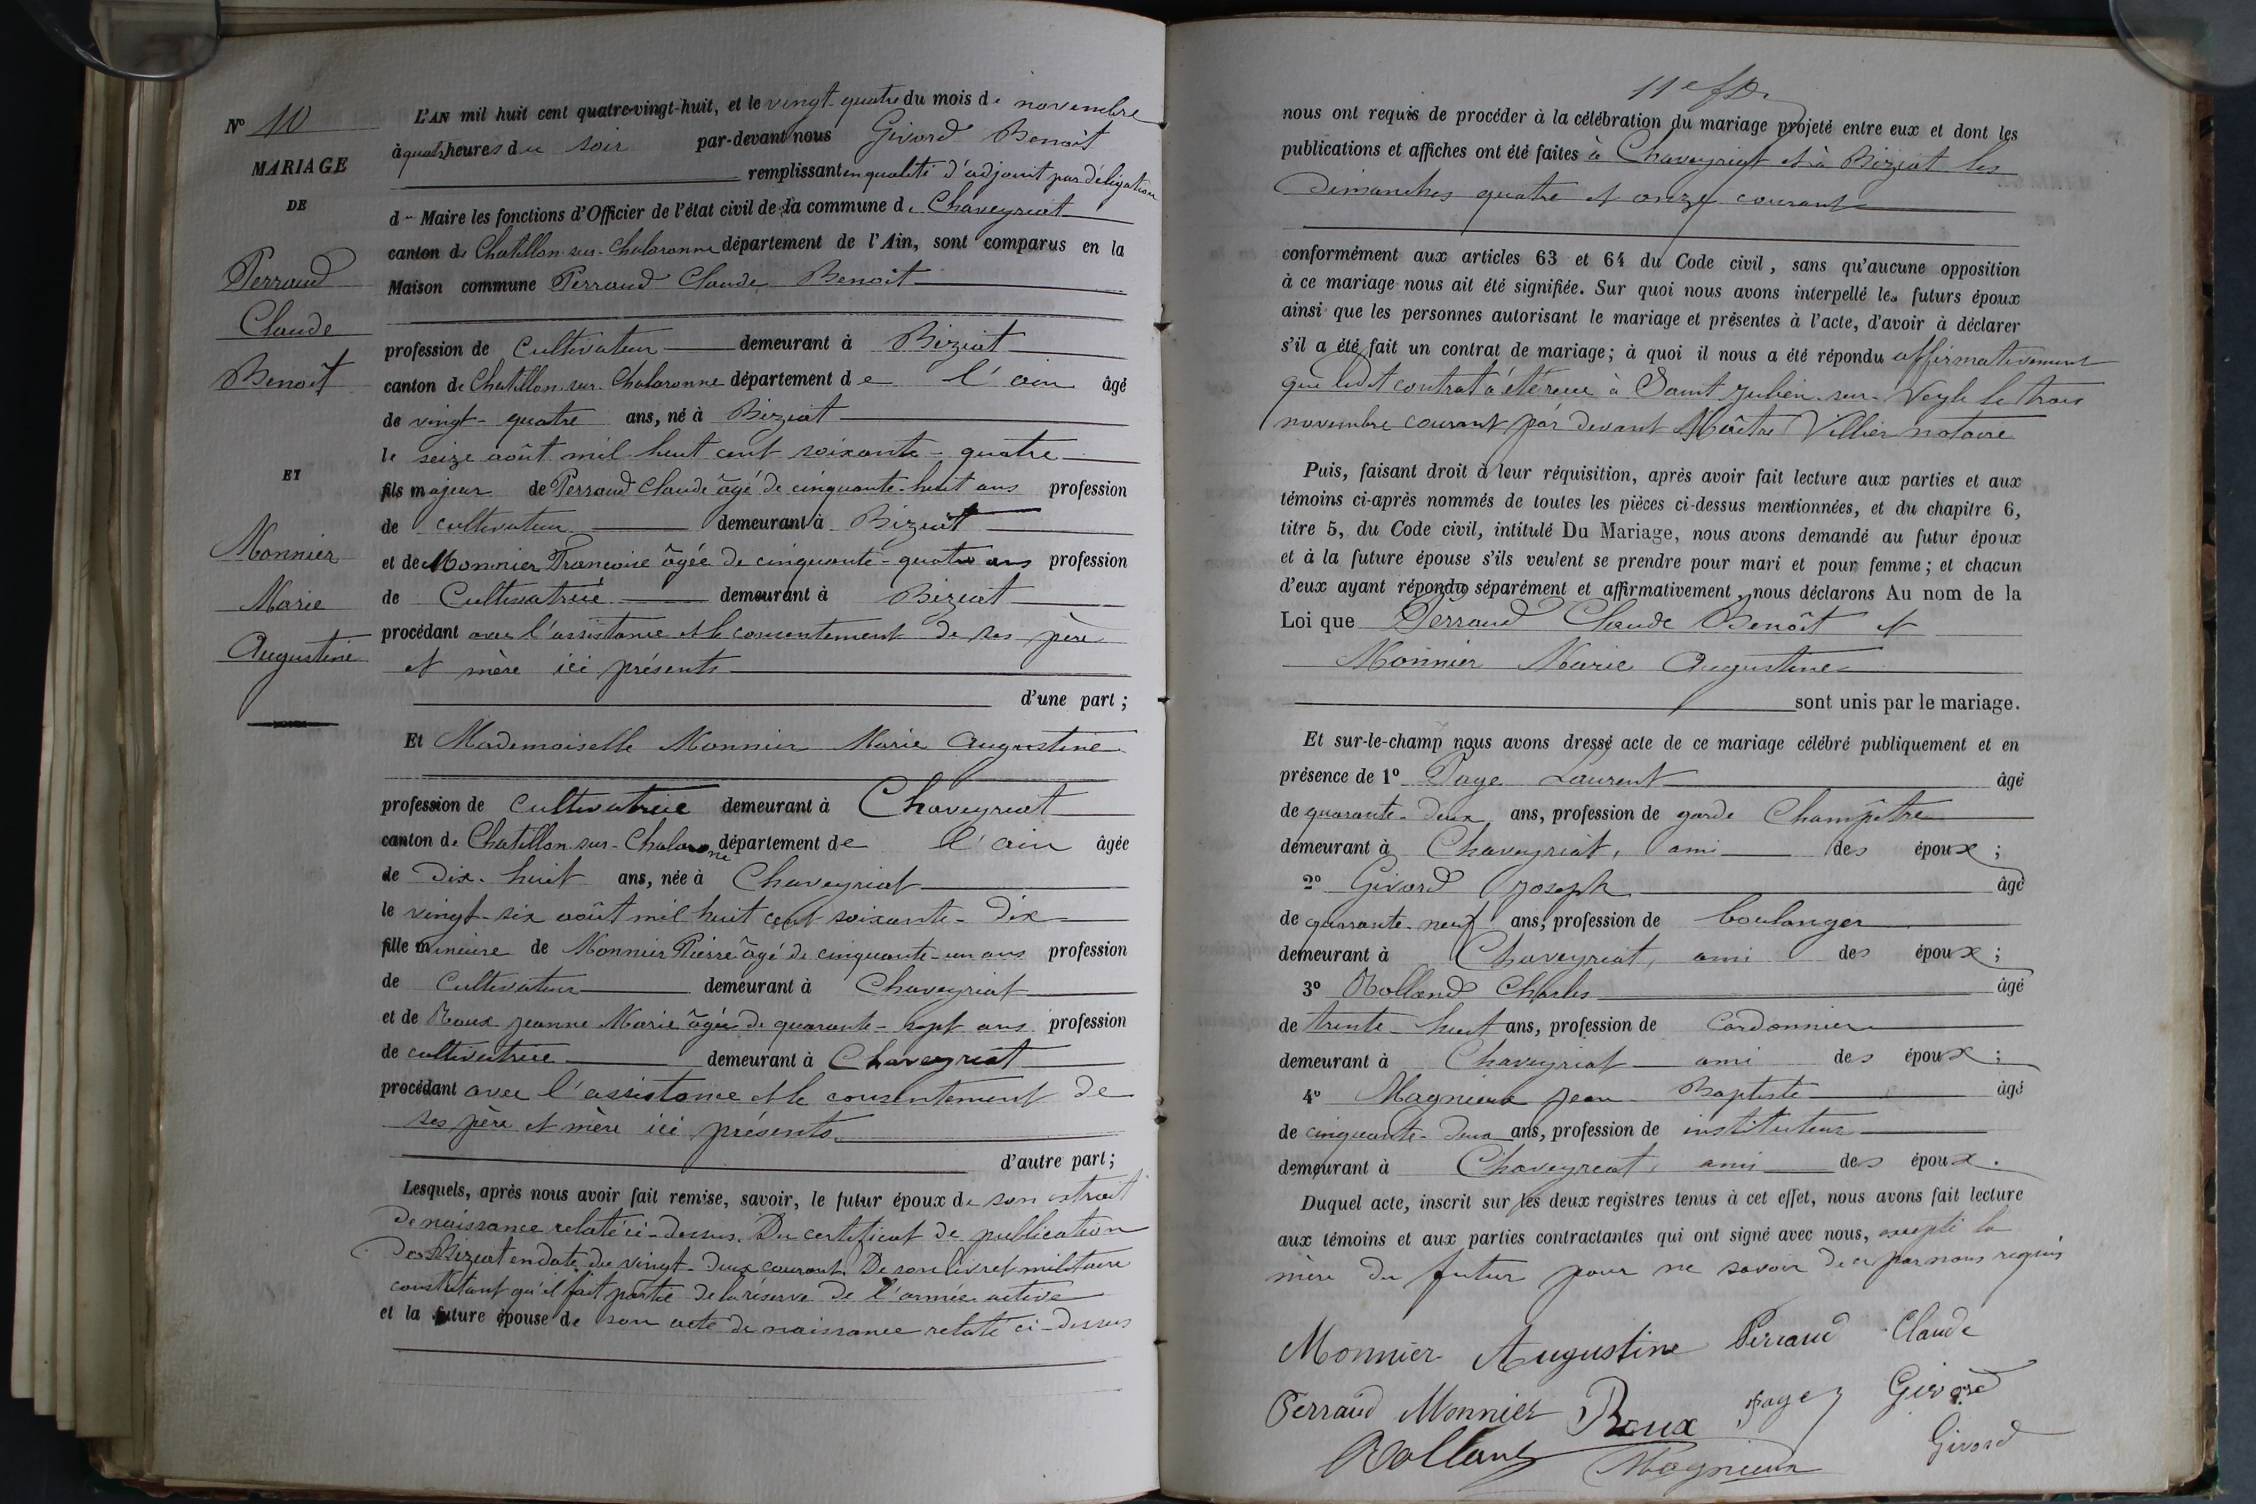 N° 10
MARIAGE
DE
Perraud
Claude
Benoit
ET
Monnier
Marie
Augustine
L'AN mil huit cent quatre-vingt-huit, et le vingt-quatre du mois de novembre
à quatre heures du soir par-devant nous Givord Benoit
remplissant en qualité d'adjoint par délégation
du Maire les fonctions d'Officier de l'état civil de la commune de Chaveyriat
canton de Chatillon-sur-Chalaronne département de l'Ain, sont comparus en la
Maison commune Perraud Claude Benoit
profession de cultivateur demeurant à Biziat
canton de Chatillon-sur-Chalaronne département de l'ain âgé
de vingt-quatre ans, né à Biziat
le seize août mil huit cent soixante-quatre
fils majeur de Perraud Claude âgé de cinquante-huit ans profession
de cultivateur demeurant à Biziat
et de Monnier Francoise âgée de cinquante-quatre ans profession
de Cultivatrice demeurant à Biziat
procédant avec l'assistance et le consentement de ses père
et mère ici présents
d'une part ;
Et Mademoiselle Monnier Marie Augustine
profession de cultivatrice demeurant à Chaveyriat
canton de Chatillon-sur-Chalaronne département de l'ain âgée
de Dix-huit ans, née à Chaveyriat
le vingt-six août mil huit cent soixante-dix
fille mineure de Monnier Pierre âgé de cinquante-un ans profession
de Cultivateur demeurant à Chaveyriat
et de Roux Jeanne Marie âgée de quarante-sept ans profession
de cultivatrice demeurant à Chaveyriat
procédant avec l'assistance et le consentement de
ses père et mère ici présents
d'autre part ;
Lesquels, après nous avoir fait remise, savoir, le futur époux de son extrait
de naissance relaté ci-dessus. Du certificat de publication
de Biziat en date du vingt-deux courant. De son livret militaire
constatant qu'il fait partie de la réserve de l'armée active
et la future épouse de son acte de naissance relaté ci-dessus
11e
nous ont requis de procéder à la célébration du mariage projeté entre eux et dont les
publications et affiches ont été faites à Chaveyriat et à Biziat les
Dimanches quatre et onze courant
conformément aux articles 63 et 64 du Code civil, sans qu'aucune opposition
à ce mariage nous ait été signifiée. Sur quoi nous avons interpellé les futurs époux
ainsi que les personnes autorisant le mariage et présentes à l'acte, d'avoir à déclarer
s'il a été fait un contrat de mariage ; à quoi il nous a été répondu affirmativement
que ledit contrat a été reçu à Saint Julien-sur-Veyle le trois
novembre courant par devant Maître Villier notaire
Puis, faisant droit à leur réquisition, après avoir fait lecture aux parties et aux
témoins ci-après nommés de toutes les pièces ci-dessus mentionnées, et du chapitre 6,
titre 5, du Code civil, intitulé Du Mariage, nous avons demandé au futur époux
et à la future épouse s'ils veulent se prendre pour mari et pour femme ; et chacun
d'eux ayant répondu séparément et affirmativement, nous déclarons Au nom de la
Loi que Perraud Claude Benoit et
Monnier Marie Augustine
sont unis par le mariage.
Et sur-le-champ nous avons dressé acte de ce mariage célébré publiquement et en
présence de 1° Page Laurent âgé
de quarante-deux ans, profession de garde Champêtre
demeurant à Chaveyriat, ami des époux ;
2° Givord Joseph âgé
de quarante-neuf ans, profession de boulanger
demeurant à Chaveyriat, ami des époux ;
3° Rolland Charles âgé
de trente-huit ans, profession de cordonnier
demeurant à Chaveyriat ami des époux ;
4° Magnieux Jean Baptiste âgé
de cinquante-deux ans, profession de instituteur
demeurant à Chaveyriat, ami des époux.
Duquel acte, inscrit sur les deux registres tenus à cet effet, nous avons fait lecture
aux témoins et aux parties contractantes qui ont signé avec nous, excepté la
mère du futur pour ne savoir de ce par nous requis
Monnier Augustine Perraud Claude
Perraud Monnier Roux Page Givord
Rolland Magnieux Givord